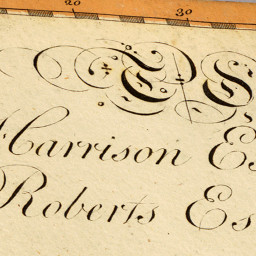 20 30
To
Harrison Es
Roberts Es